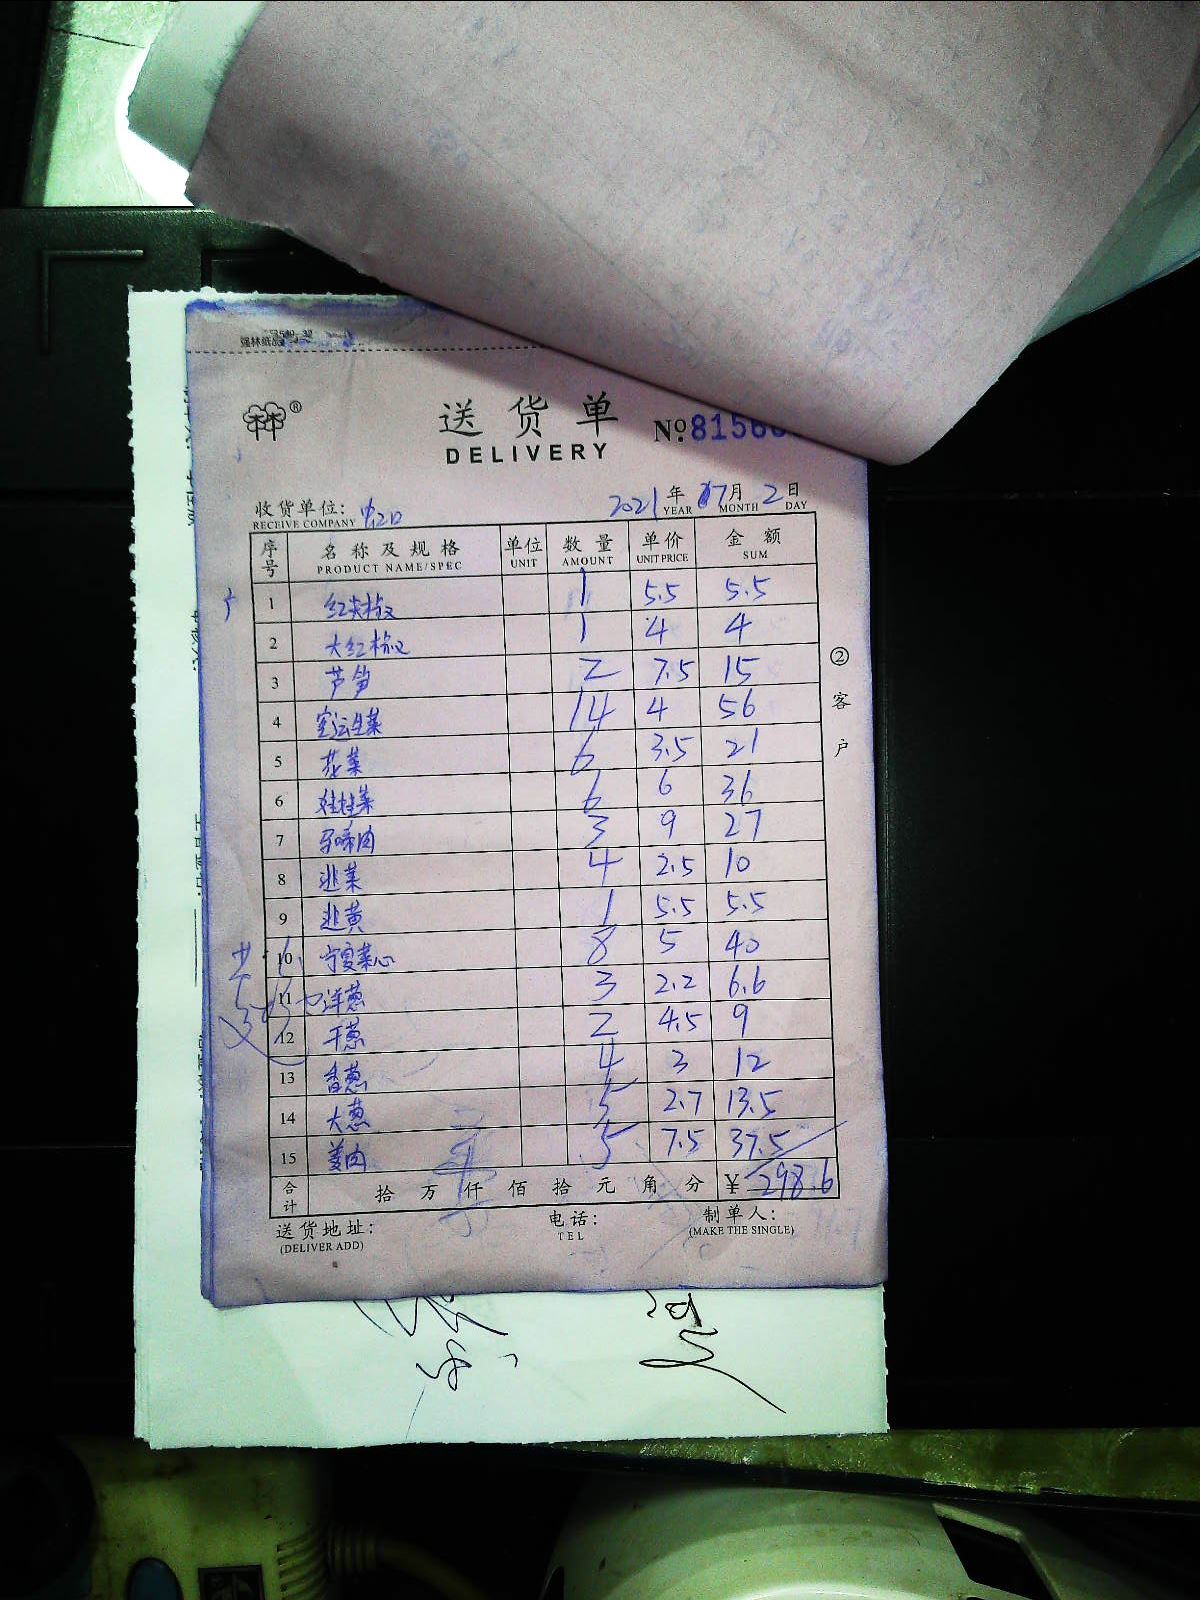 强林纸品
®
送货单
DELIVERY
№ 8156
收货单位：
RECEIVE COMPANY
2021年 07月 2日
YEAR MONTH DAY
序号 名称及规格 单位 数量 单价 金额
PRODUCT NAME/SPEC UNIT AMOUNT UNIT PRICE SUM
1 红尖椒 1 5.5 5.5
2 大红椒 1 4 4
3 芦笋 2 7.5 15
4 空运生菜 14 4 56
5 花菜 6 3.5 21
6 娃娃菜 6 6 36
7 孕啼肉 3 9 27
8 韭菜 4 2.5 10
9 韭黄 1 5.5 5.5
10 宁夏菜心 8 5 40
11 洋葱 3 2.2 6.6
12 干葱 2 4.5 9
13 香葱 4 3 12
14 大葱 5 2.7 13.5
15 姜肉 5 7.5 37.5
合计 拾 万 仟 佰 拾 元 角 分 ¥ 298.6
送货地址： 电话： 制单人：
(DELIVER ADD) TEL (MAKE THE SINGLE)
②客户